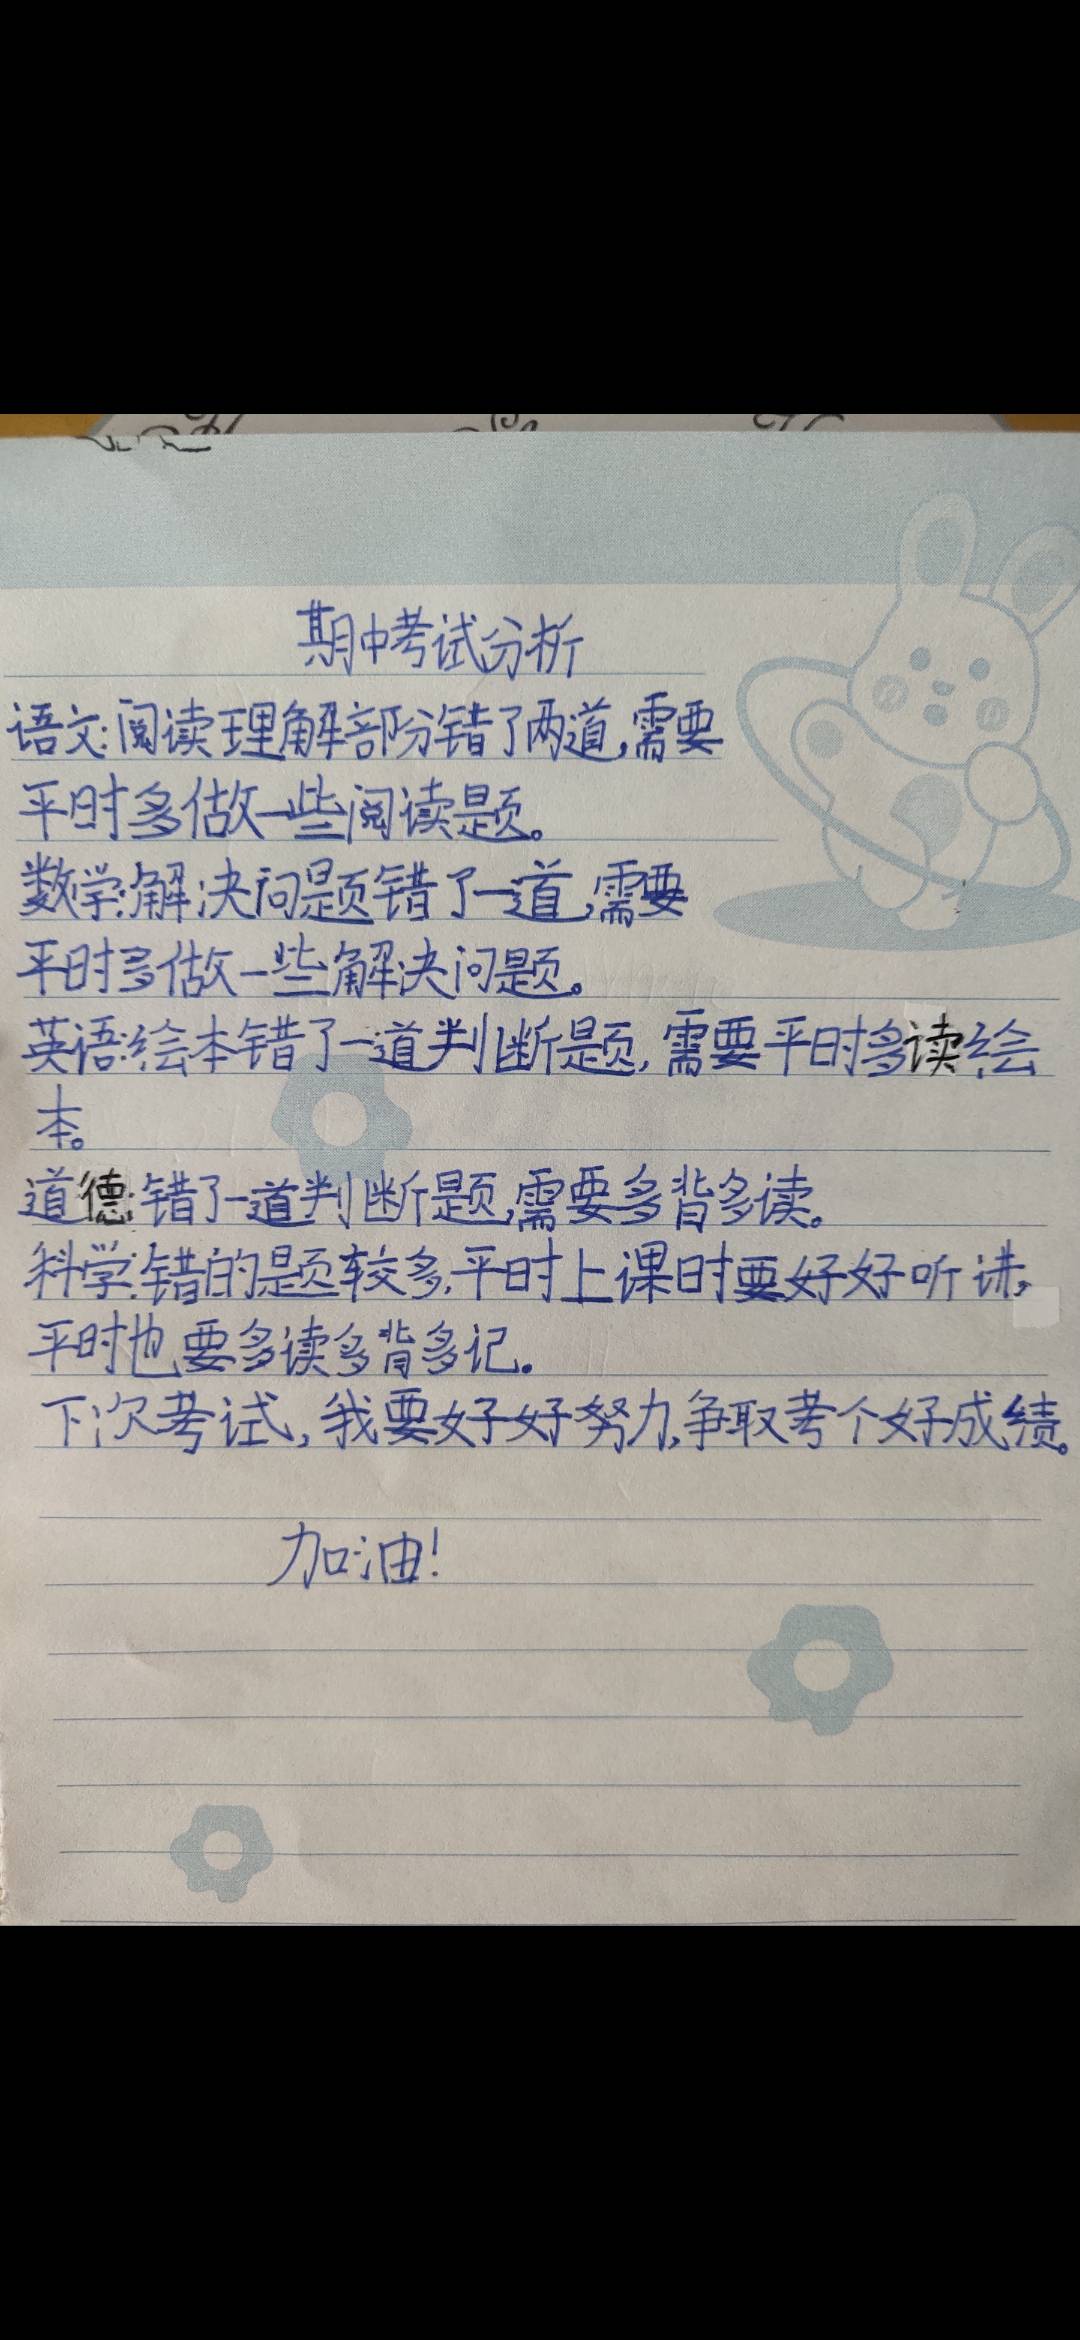 期中考试分析
语文:阅读理解部分错了两道,需要
平时多做一些阅读题。
数学:解决问题错了一道,需要
平时多做一些解决问题。
英语:绘本错了一道判断题,需要平时多读绘
本。
道德:错了一道判断题,需要多背多读。
科学:错的题较多,平时上课时要好好听讲,
平时也要多读多背多记。
下次考试,我要好好努力,争取考个好成绩。
加油!